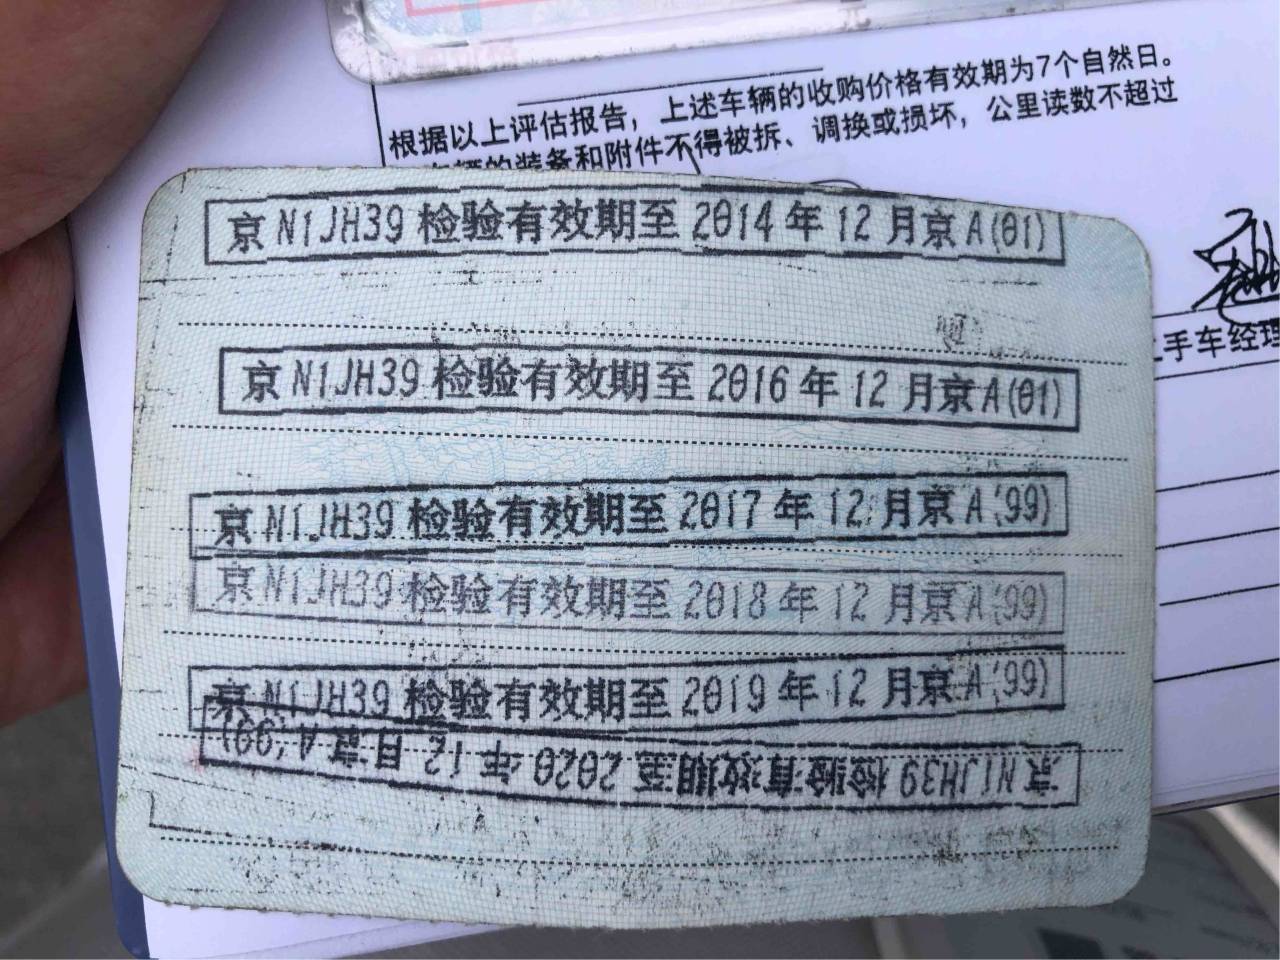 根据以上评估报告，上述车辆的收购价格有效期为7个自然日。
车辆的装备和附件不得被拆、调换或损坏，公里读数不超过
手车经理
京N1JH39检验有效期至2014年12月京A(01)
京N1JH39检验有效期至2016年12月京A(01)
京N1JH39检验有效期至2017年12月京A(99)
京N1JH39检验有效期至2018年12月京A(99)
京N1JH39检验有效期至2019年12月京A(99)
京N1JH39检验有效期至2020年12月京A(99)